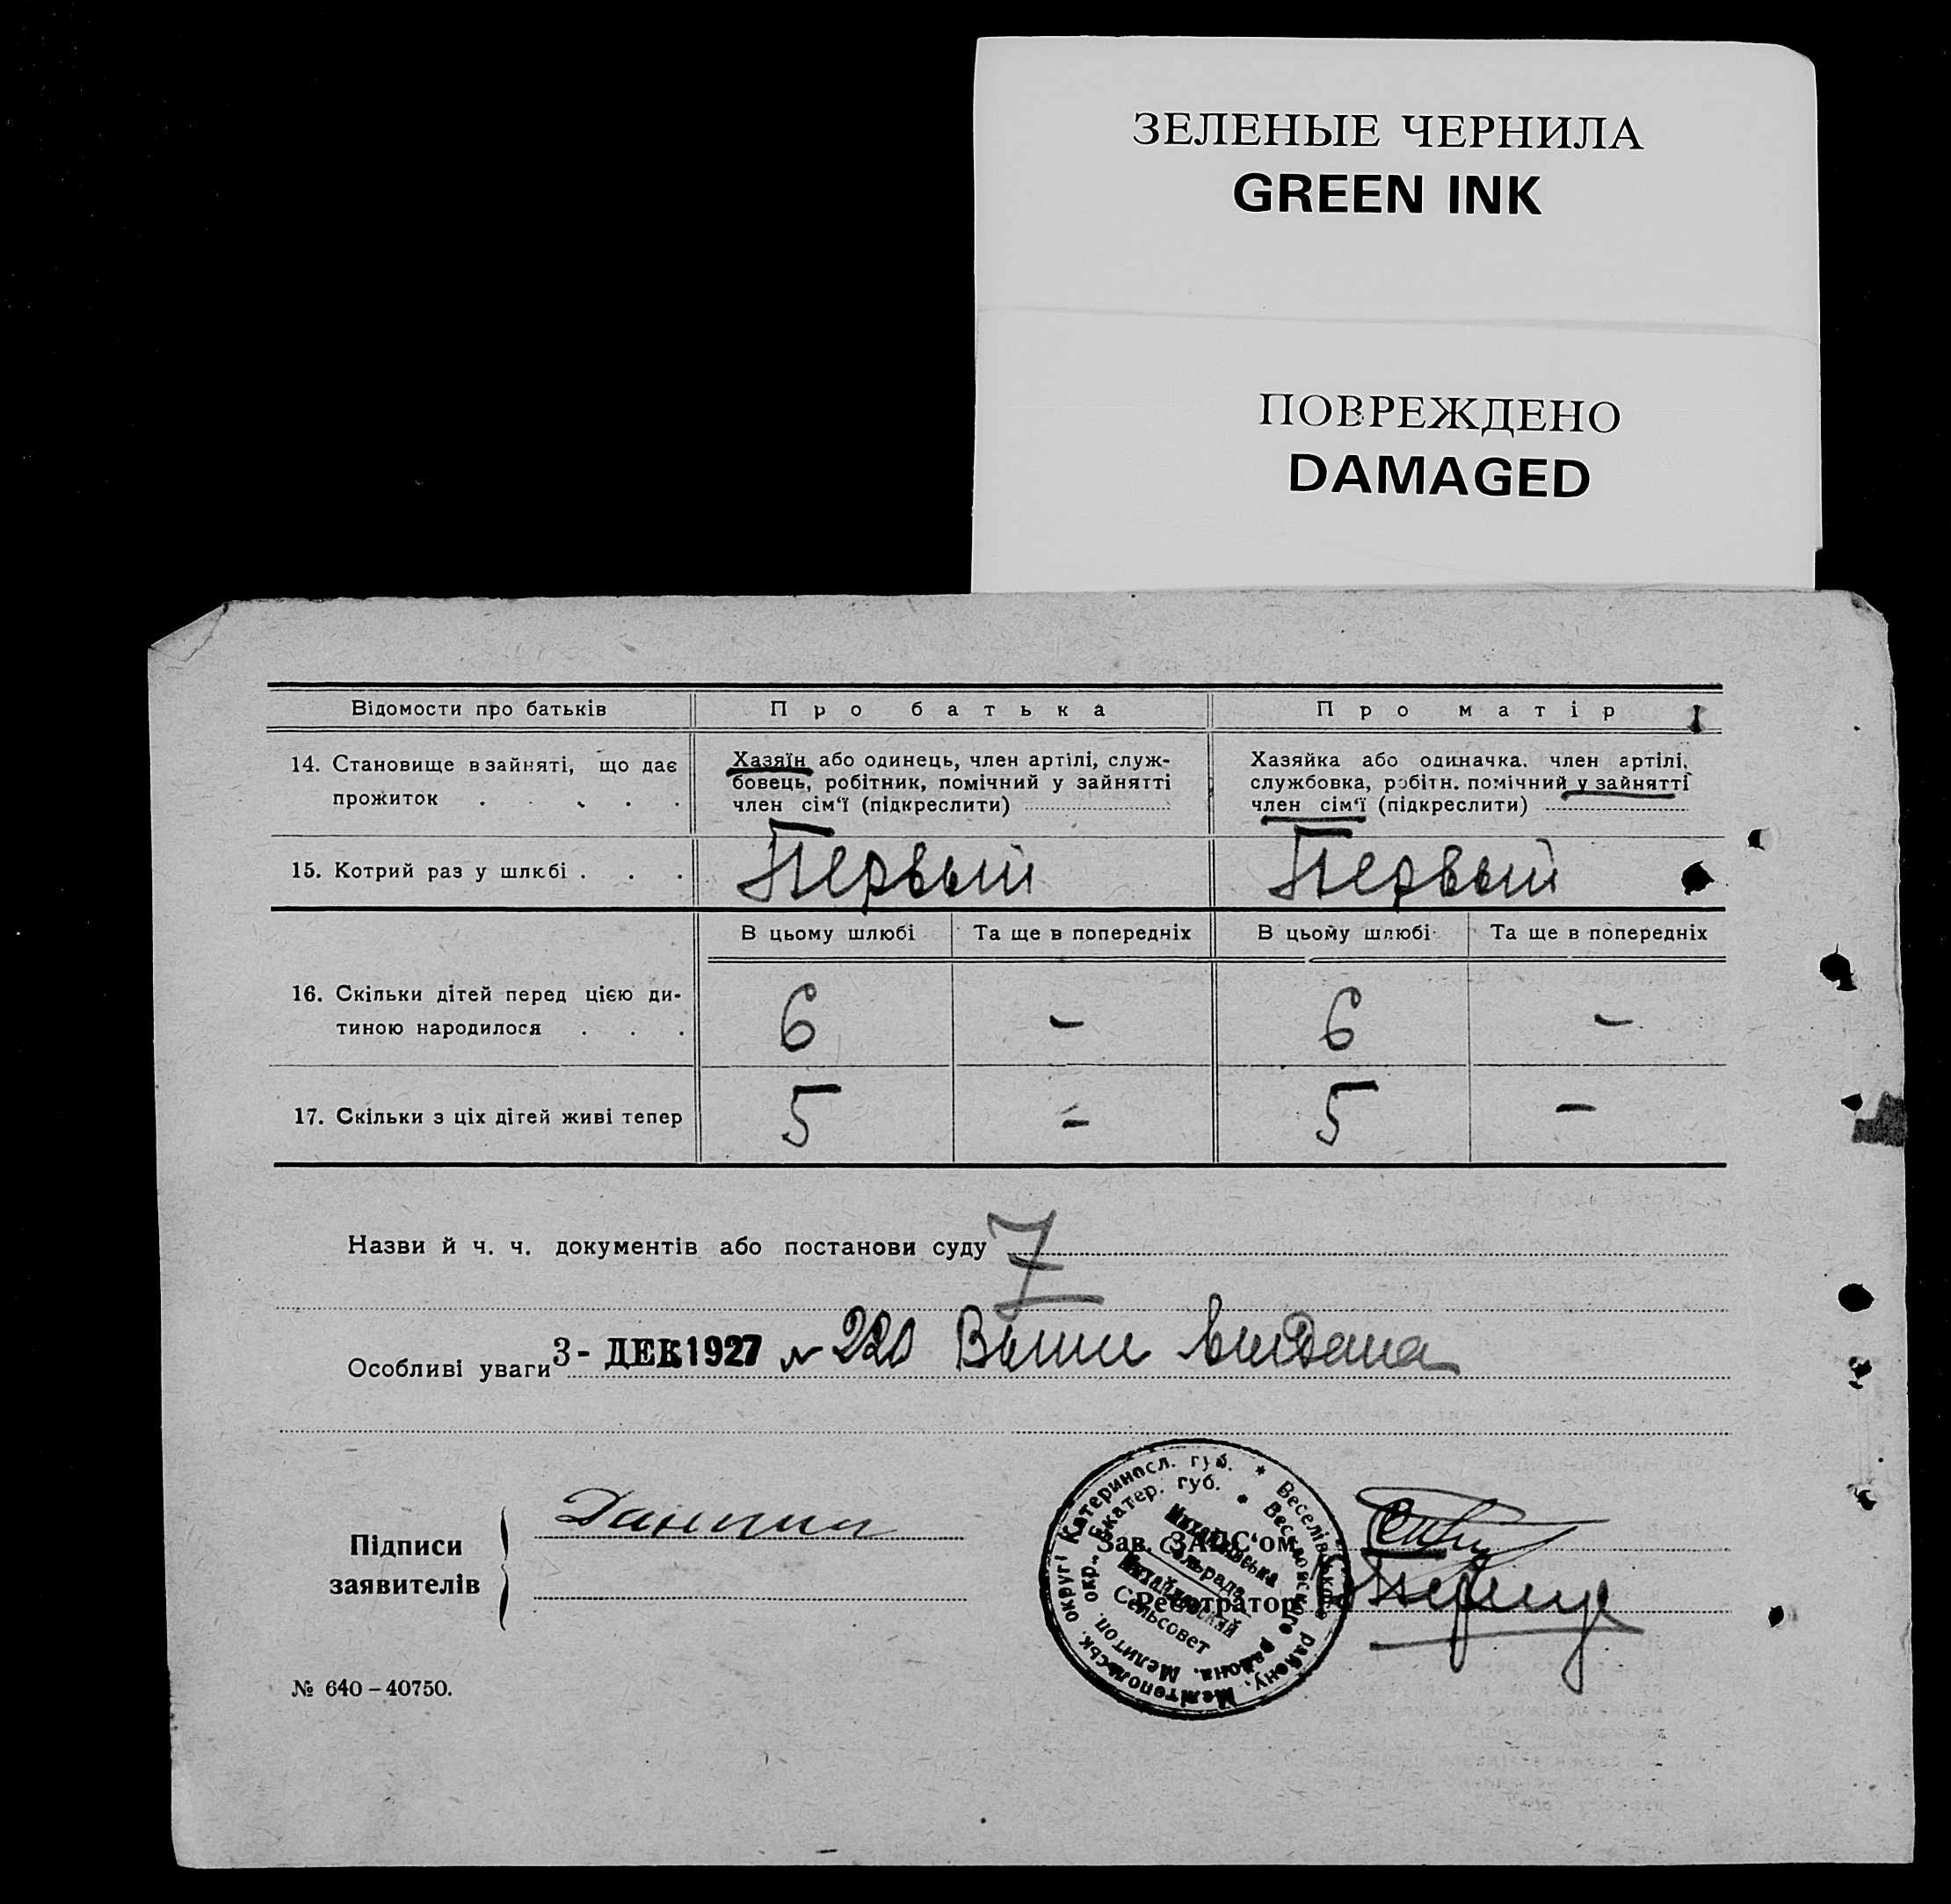 ЗЕЛЕНЫЕ ЧЕРНИЛА
GREEN INK
ПОВРЕЖДЕНО
DAMAGED
Відомости про батьків Про батька Про матір
14. Становище в зайняті, що дає прожиток . . . . .
Хазяїн або одинець, член артілі, служ-
бовець, робітник, помічний у зайнятті
член сім‘ї (підкреслити)
Хазяйка або одиначка. член артілі,
службовка, робітн. помічний у зайнятті
член сім‘ї (підкреслити)
15. Котрий раз у шлюбі . . . Первый Первый
В цьому шлюбі Та ще в попередніх В цьому шлюбі Та ще в попередніх
16. Скільки дітей перед цією ди-
тиною народилося . . . 6 – 6 –
17. Скільки з ціх дітей живі тепер 5 – 5 –
Назви й ч. ч. документів або постанови суду 7
Особливі уваги 3 - ДЕК 1927 № 220
Підписи
заявителів
Зав. ЗАГС‘ом
Реєстратор
Катериносл. губ. * Веселівського району, Мелітопольськ. округі
Екатер. губ. * Веселовского района, Мелитоп. окр.
Михайлівська
Сельрада
Михайловский
Сельсовет
№ 640 – 40750.